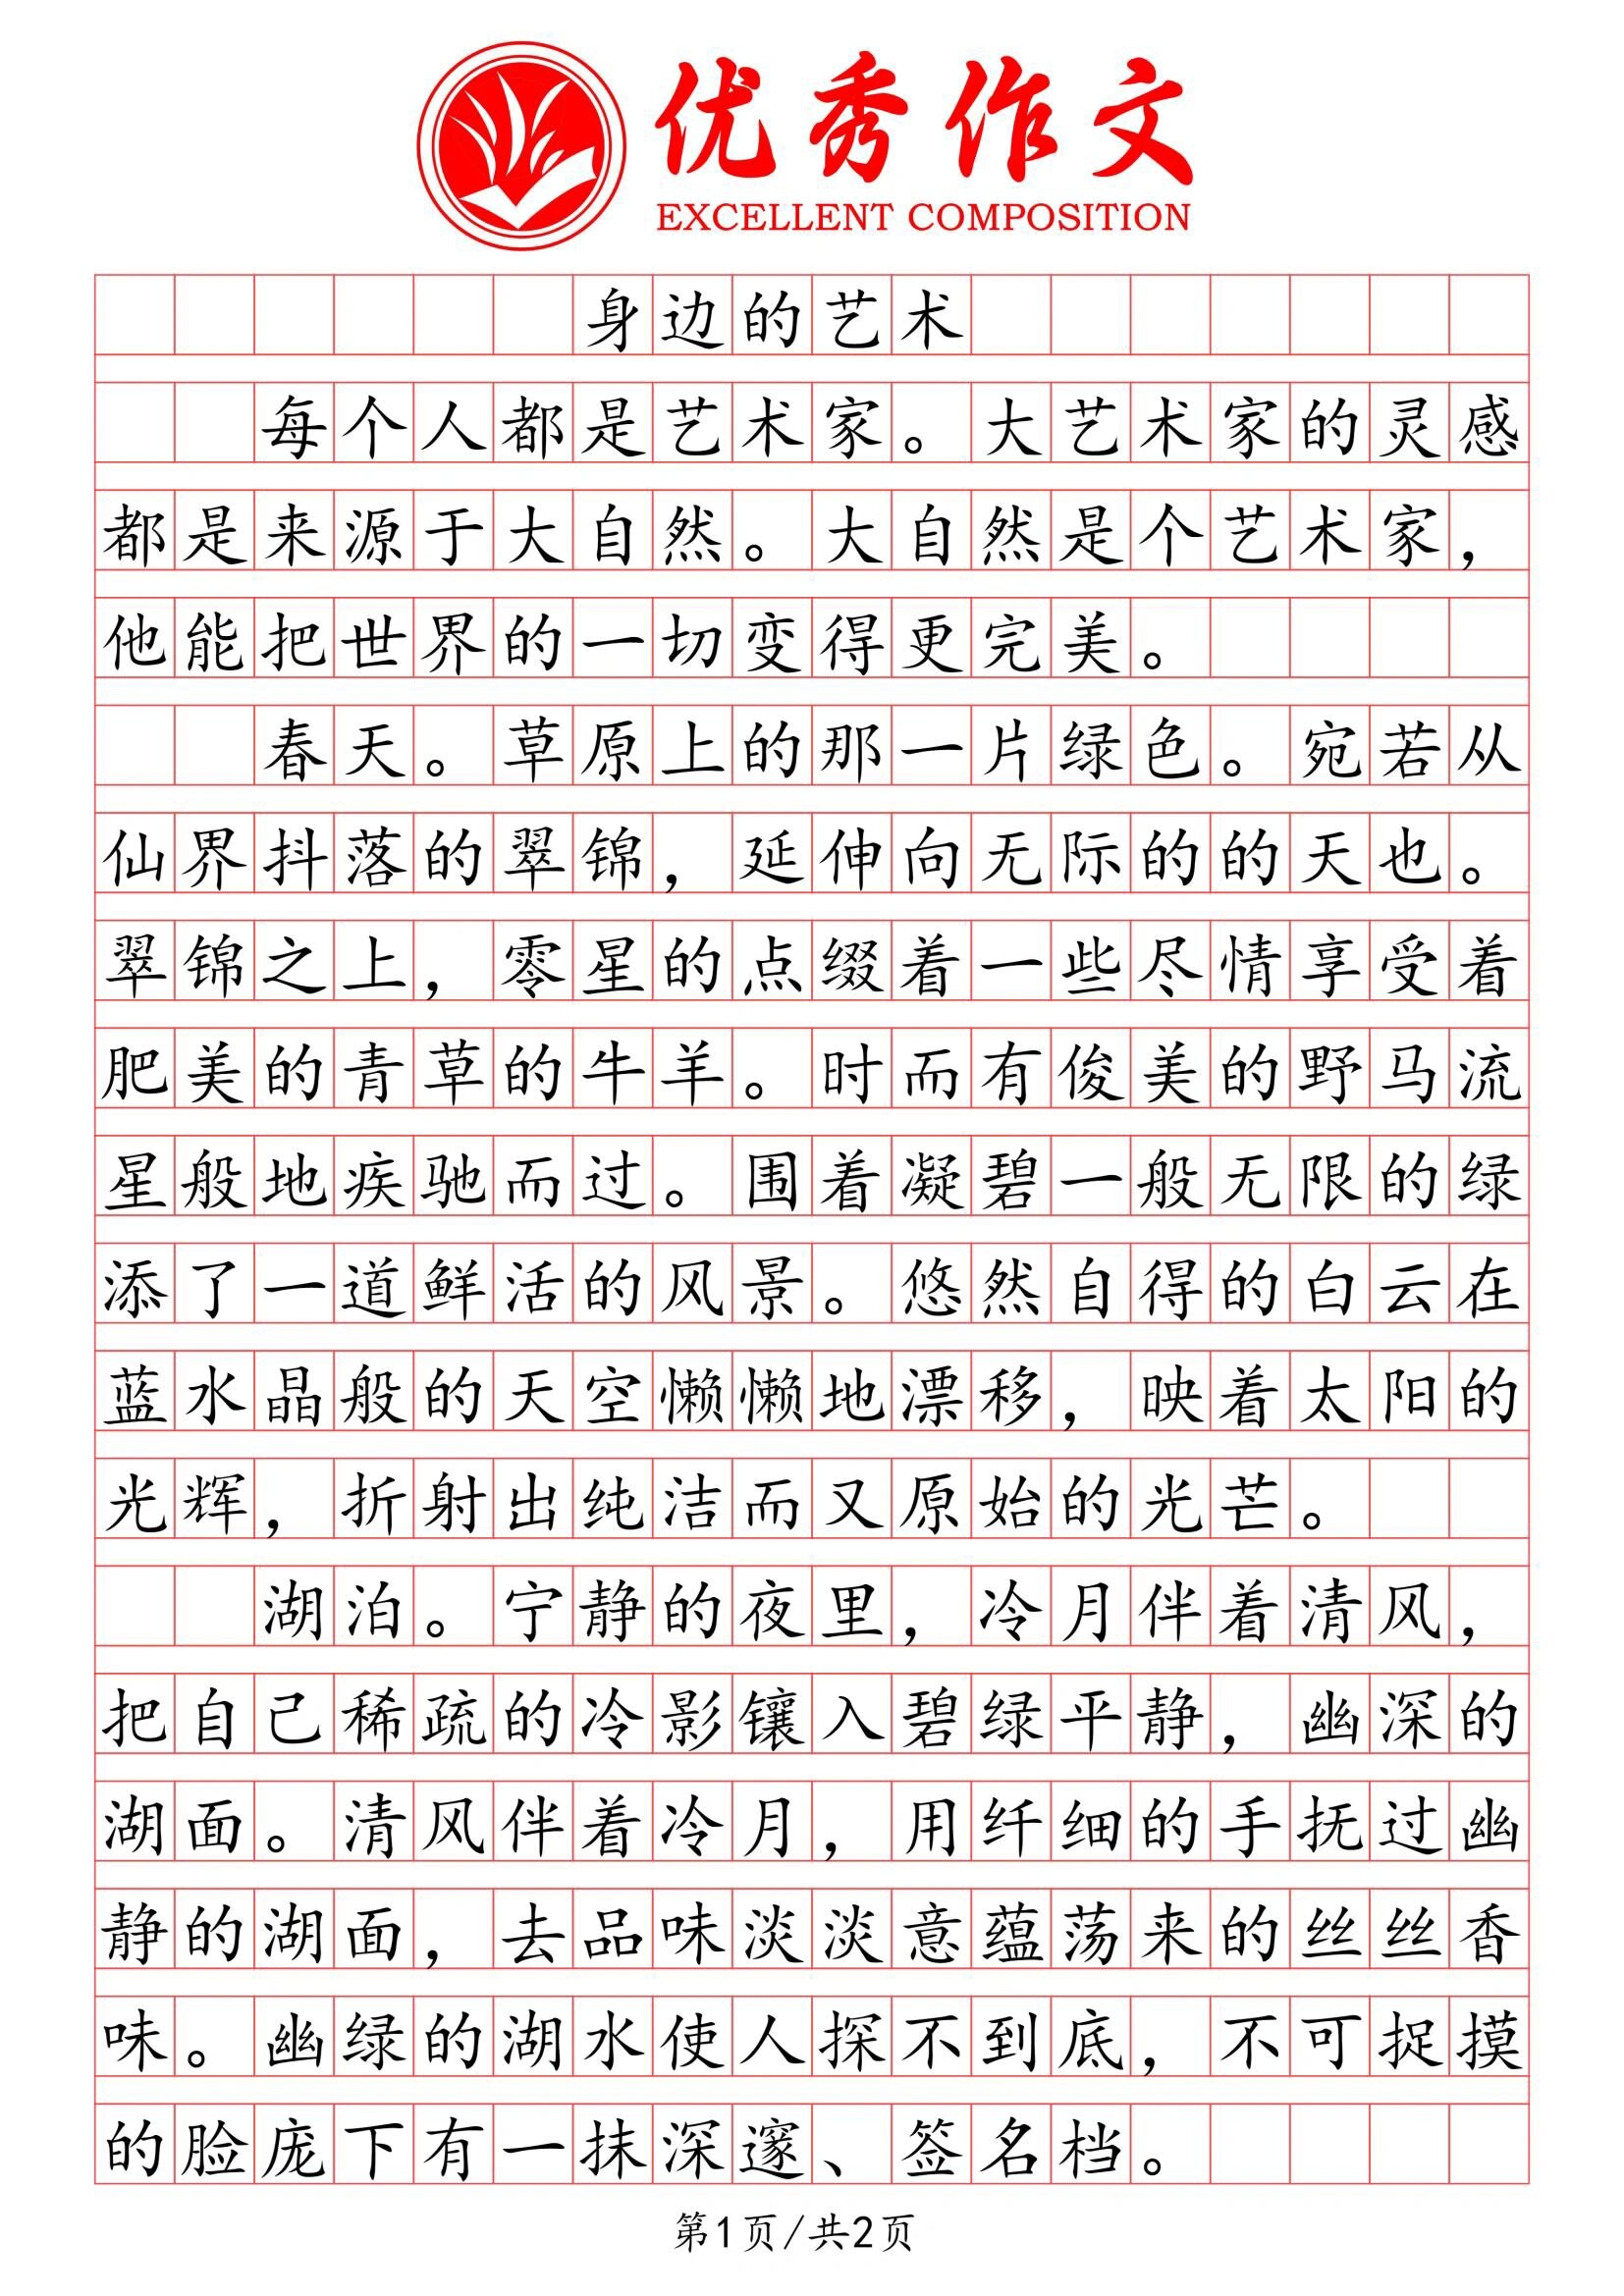 优秀作文
EXCELLENT COMPOSITION
身边的艺术
每个人都是艺术家。大艺术家的灵感
都是来源于大自然。大自然是个艺术家，
他能把世界的一切变得更完美。
春天。草原上的那一片绿色。宛若从
仙界抖落的翠锦，延伸向无际的的天也。
翠锦之上，零星的点缀着一些尽情享受着
肥美的青草的牛羊。时而有俊美的野马流
星般地疾驰而过。围着凝碧一般无限的绿
添了一道鲜活的风景。悠然自得的白云在
蓝水晶般的天空懒懒地漂移，映着太阳的
光辉，折射出纯洁而又原始的光芒。
湖泊。宁静的夜里，冷月伴着清风，
把自己稀疏的冷影镶入碧绿平静，幽深的
湖面。清风伴着冷月，用纤细的手抚过幽
静的湖面，去品味淡淡意蕴荡来的丝丝香
味。幽绿的湖水使人探不到底，不可捉摸
的脸庞下有一抹深邃、签名档。
第1页/共2页